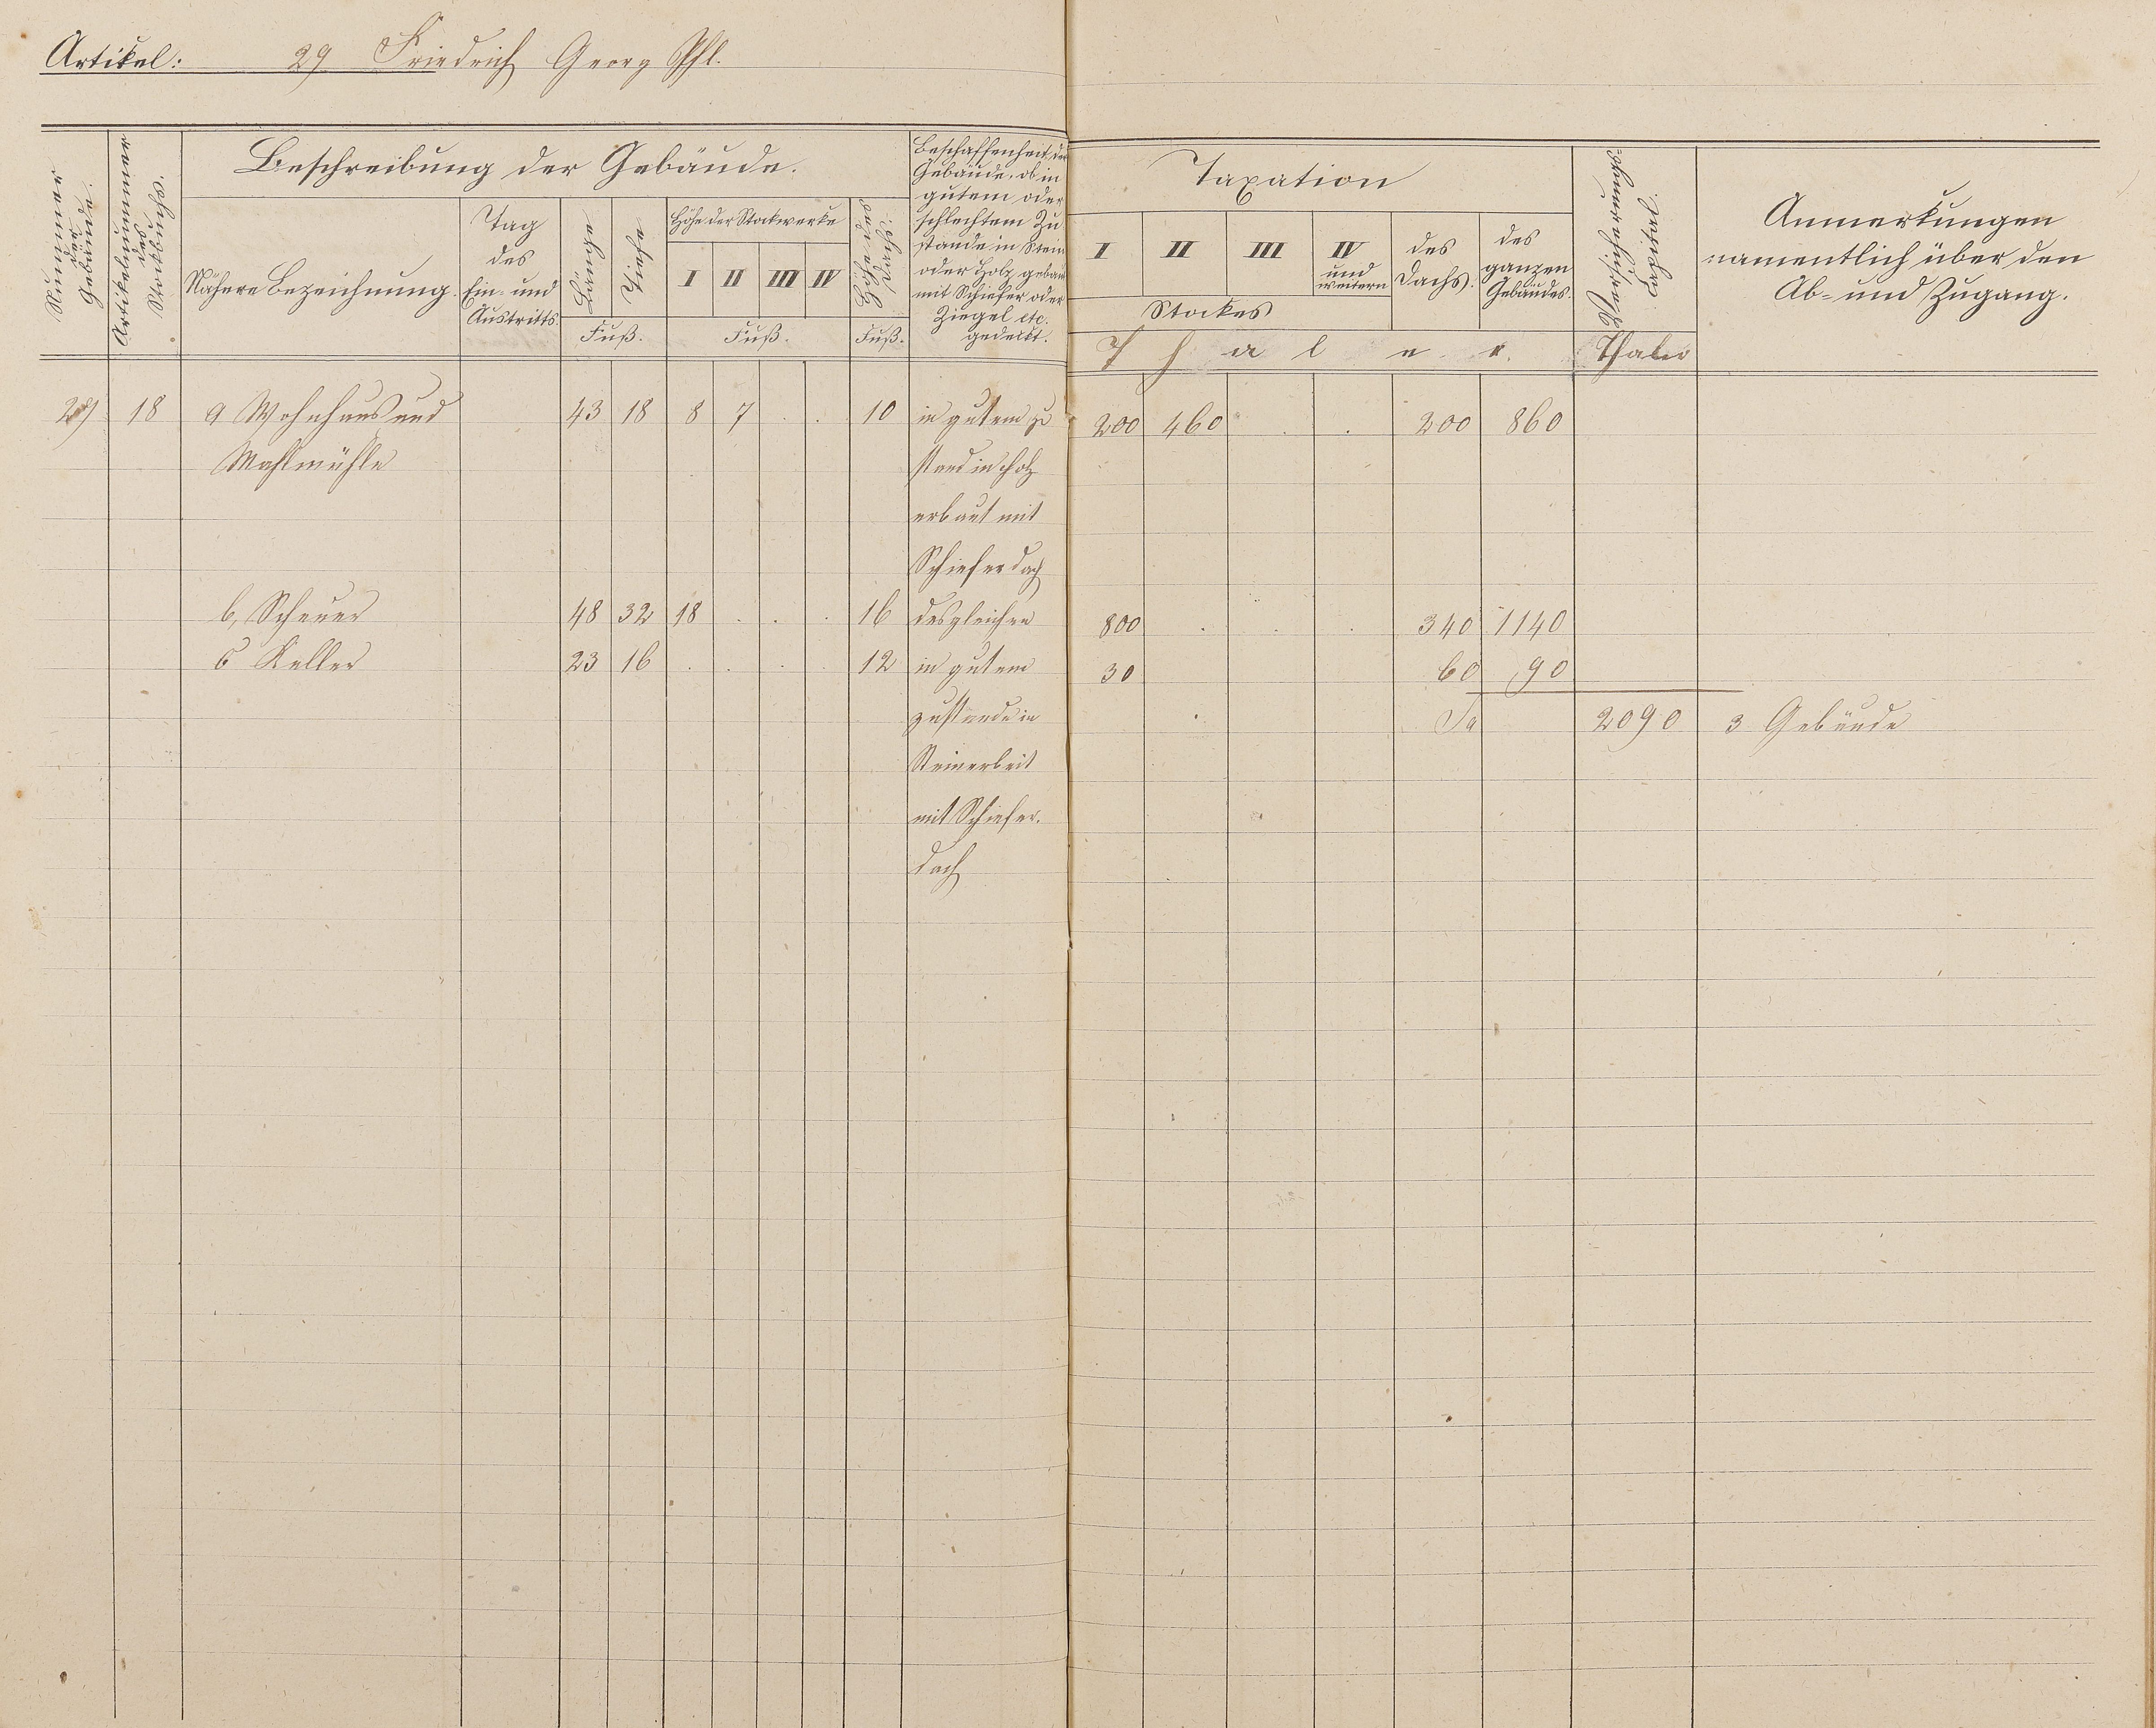 Artikel: 29 Friedrich Georg Phl.
Nummer der Gebäude.
Artikelnummer des Stockbuchs.
Beschreibung der Gebäude.
Nähere Bezeichnung.
Tag des Ein- und Austritts.
Länge
Tiefe
Fuß.
Höhe der Stockwerke
I II III IV
Fuß.
Höhe des Dachs.
Fuß.
Beschaffenheit der
Gebäude, ob in
gutem oder
schlechtem Zu
stande in Stein
oder Holz gebaut
mit Schiefer oder
Ziegel etc.
gedeckt.
Taxation
I II III IV und weitern
Stockes
des Dachs.
des ganzen Gebäudes.
Thaler.
Versicherungs-Capital.
Thaler
Anmerkungen
namentlich über den
Ab- und Zugang.
29 18 a Wohnhaus und 43 18 8 7 . . 10 in gutem zu 200 460 . . 200 860
Mahlmühle stand in Holz
erbaut mit
Schieferdach
b, Scheuer 48 32 18 . . . 16 desgleichen 800 . . . 340 1140
c Keller 23 16 . . . . 12 in gutem 30 60 90
zustande in Sa 2090 3 Gebäude
Steinerbeit
mit Schiefer.
dach